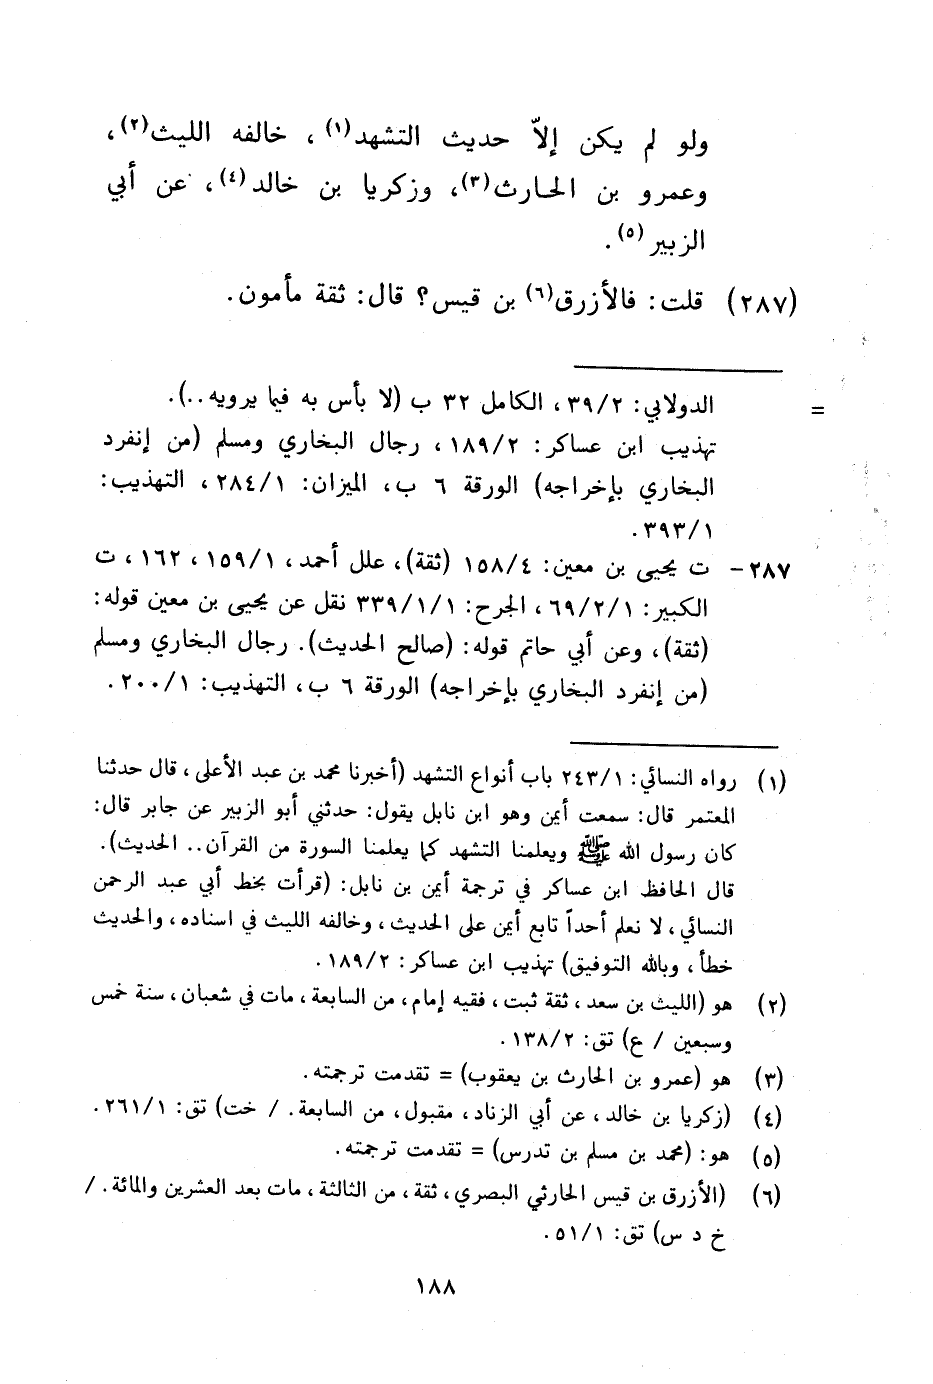 ولو لم يكن إلاّ حديث التشهد(١)، خالفه الليث(٢)،
وعمرو بن الحارث(٣)، وزكريا بن خالد(٤)، عن أبي
الزبير(٥).
(٢٨٧) قلت: فالأزرق(٦) بن قيس؟ قال: ثقة مأمون.
= الدولابي: ٣٩/٢، الكامل ٣٢ ب (لا بأس به فيما يرويه..).
تهذيب ابن عساكر: ١٨٩/٢، رجال البخاري ومسلم (من إنفرد
البخاري بإخراجه) الورقة ٦ ب، الميزان: ٢٨٤/١، التهذيب:
٣٩٣/١.
٢٨٧- ت يحيى بن معين: ١٥٨/٤ (ثقة)، علل أحمد، ١٥٩/١، ١٦٢، ت
الكبير: ٦٩/٢/١، الجرح: ٣٣٩/١/١ نقل عن يحيى بن معين قوله:
(ثقة)، وعن أبي حاتم قوله: (صالح الحديث). رجال البخاري ومسلم
(من إنفرد البخاري بإخراجه) الورقة ٦ ب، التهذيب: ٢٠٠/١.
(١) رواه النسائي: ٢٤٣/١ باب أنواع التشهد (أخبرنا محمد بن عبد الأعلى، قال حدثنا
المعتمر قال: سمعت أيمن وهو ابن نابل يقول: حدثني أبو الزبير عن جابر قال:
كان رسول الله ﷺ ويعلمنا التشهد كما يعلمنا السورة من القرآن.. الحديث).
قال الحافظ ابن عساكر في ترجمة أيمن بن نابل: (قرأت بخط أبي عبد الرحمن
النسائي، لا نعلم أحداً تابع أيمن على الحديث، وخالفه الليث في اسناده، والحديث
خطأ، وبالله التوفيق) تهذيب ابن عساكر: ١٨٩/٢.
(٢) هو (الليث بن سعد، ثقة ثبت، فقيه إمام، من السابعة، مات في شعبان، سنة خمس
وسبعين / ع) تق: ١٣٨/٢.
(٣) هو (عمرو بن الحارث بن يعقوب) = تقدمت ترجمته.
(٤) (زكريا بن خالد، عن أبي الزناد، مقبول، من السابعة. / خت) تق: ٢٦١/١.
(٥) هو: (محمد بن مسلم بن تدرس) = تقدمت ترجمته.
(٦) (الأزرق بن قيس الحارثي البصري، ثقة، من الثالثة، مات بعد العشرين والمائة. /
خ د س) تق: ٥١/١.
١٨٨